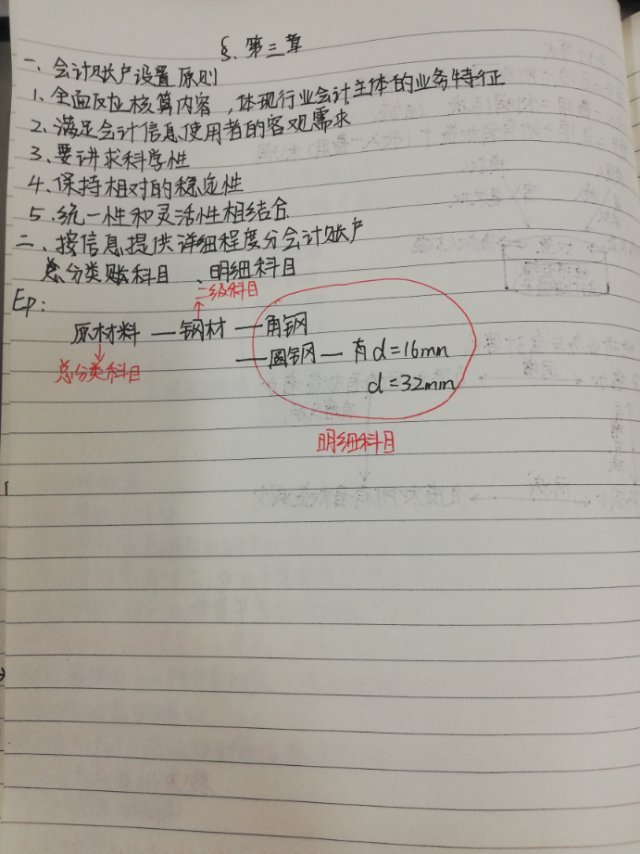 §. 第三章
一、会计账户设置原则
1. 全面反应核算内容，体现行业会计主体的业务特征
2. 满足会计信息使用者的客观需求
3. 要讲求科学性
4. 保持相对的稳定性
5. 统一性和灵活性相结合
二、按信息提供详细程度分会计账户
总分类账科目、明细科目
二级科目
Ep:
原材料 — 钢材 — 角钢
— 圆钢 — 有 d=16mm
总分类科目
d=32mm
明细科目